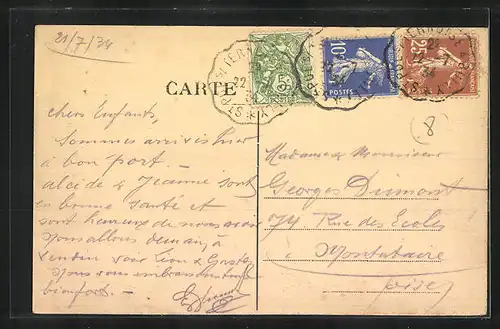 21/7/34
CARTE
5c
10c
POSTES
25c
22
(8)
chers Enfants,
Sommes arrivés hier
à bon port —
de & Jeanne sont
en bonne santé et
sont heureux de nous avoir
Nous allons demain à
voir Léon &
Nous vous embrassons tous
bien fort. —
Madame & Monsieur
Georges Dumont
74 Rue des Ecoles
à Montataire
(Oise)